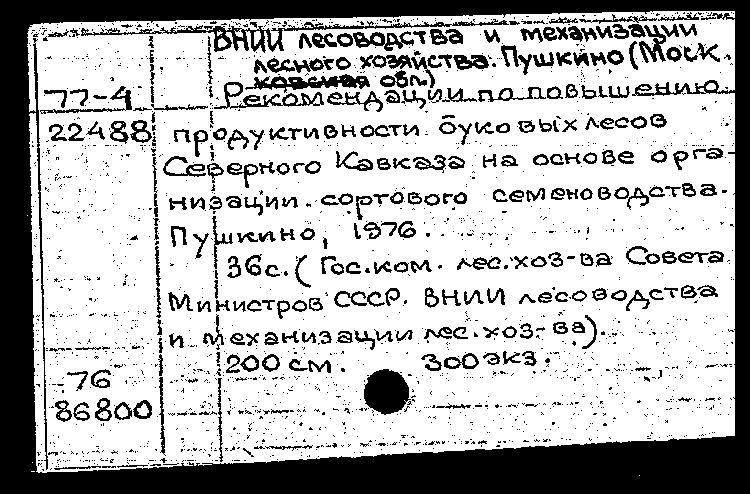 ВНИИ лесоводства и механизации
лесного хозяйства. Пушкино (Моск.
обл.)
77-4 Рекомендации по повышению
22488 продуктивности буковых лесов
Северного Кавказа на основе орга-
низации сортового семеноводства.
Пушкино, 1976.
36с. (Гос.ком. лес.хоз-ва Совета
Министров СССР. ВНИИ лесоводства
и механизации лес.хоз-ва).
200 см. 300 экз.
76
86800